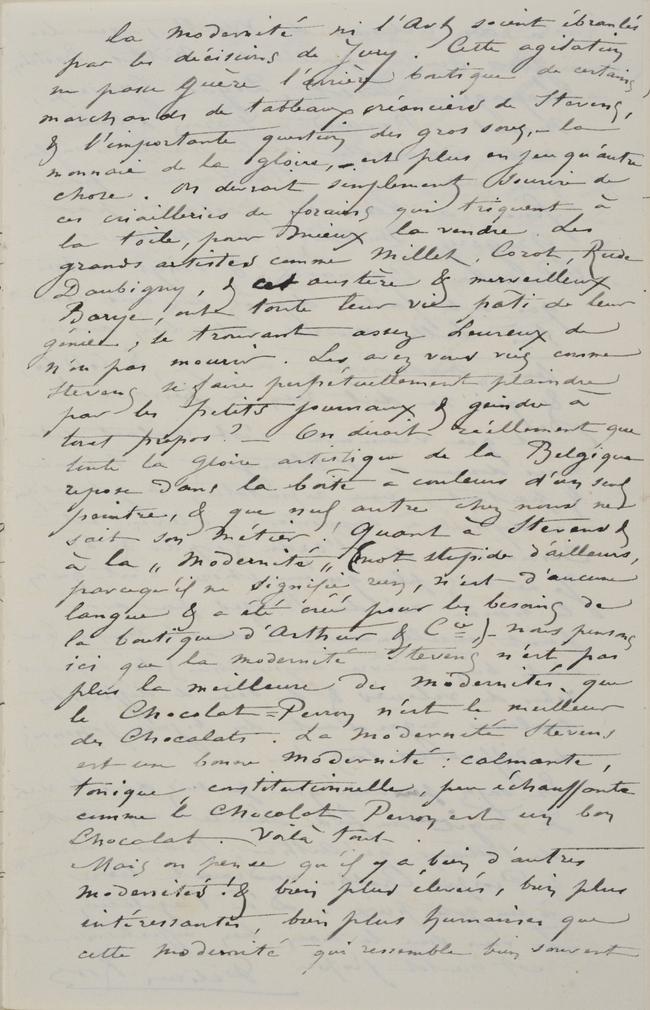 la modernité ni l'Art soient ébranlés
par les décisions de Jury. Cette agitation
ne passe guère l'arrière boutique de certains
marchands de tableaux créanciers de Stevens,
& l'importante question des gros sous, – la
monnaie de la gloire, – est plus en jeu qu'autre
chose. On devrait simplement sourire de
ces criailleries de forains qui triquent à
la toile, pour mieux la vendre. Les
grands artistes comme Millet, Corot, Rude
Daubigny, & cet austère & merveilleux
Barye, ont toute leur vie pati de leur
génie, se trouvant assez heureux de
n'en pas mourir. Les avez vous vus comme
Stevens se faire perpétuellement plaindre
par les petits journaux & geindre à
tout propos? – On dirait réellement que
toute la gloire artistique de la Belgique
repose dans la boîte à couleurs d'un seul
peintre, & que nul autre chez nous ne
sait son métier! Quant à Stevens &
à la „ Modernité „ (mot stupide d'ailleurs,
parcequ'il ne signifie rien, n'est d'aucune
langue & a été créé pour les besoins de
la boutique d'Arthur & Cie,) – nous pensons
ici que la modernité Stevens n'est pas
plus la meilleure des modernités, que
le Chocolat=Perron n'est le meilleur
des Chocolats. La modernité Stevens
est une bonne modernité : calmante,
tonique, constitutionnelle, peu échauffante
comme le Chocolat Perron est un bon
Chocolat. Voilà tout.
Mais on pense qu'il y a bien d'autres
modernités! & bien plus élevées, bien plus
intéressantes, bien plus humaines que
cette modernité qui ressemble bien souvent